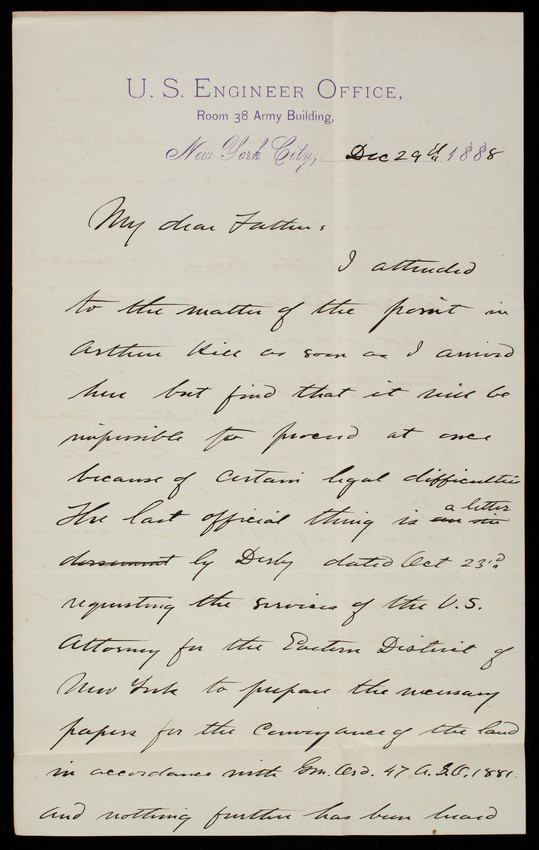 U. S. ENGINEER OFFICE,
Room 38 Army Building,
New York City, Dec 29th 1888
My dear Father:
I attended
to the matter of the point in
Arthur Kill as soon as I arrived
here but find that it will be
impossible to proceed at once
because of certain legal difficulties
The last official thing is a letter
by Derby dated Oct 23d
requesting the services of the U.S.
Attorney for the Eastern District of
New York to prepare the necessary
papers for the conveyance of the land
in accordance with Gen. Ord. 47 A.G.O. 1881.
and nothing further has been heard